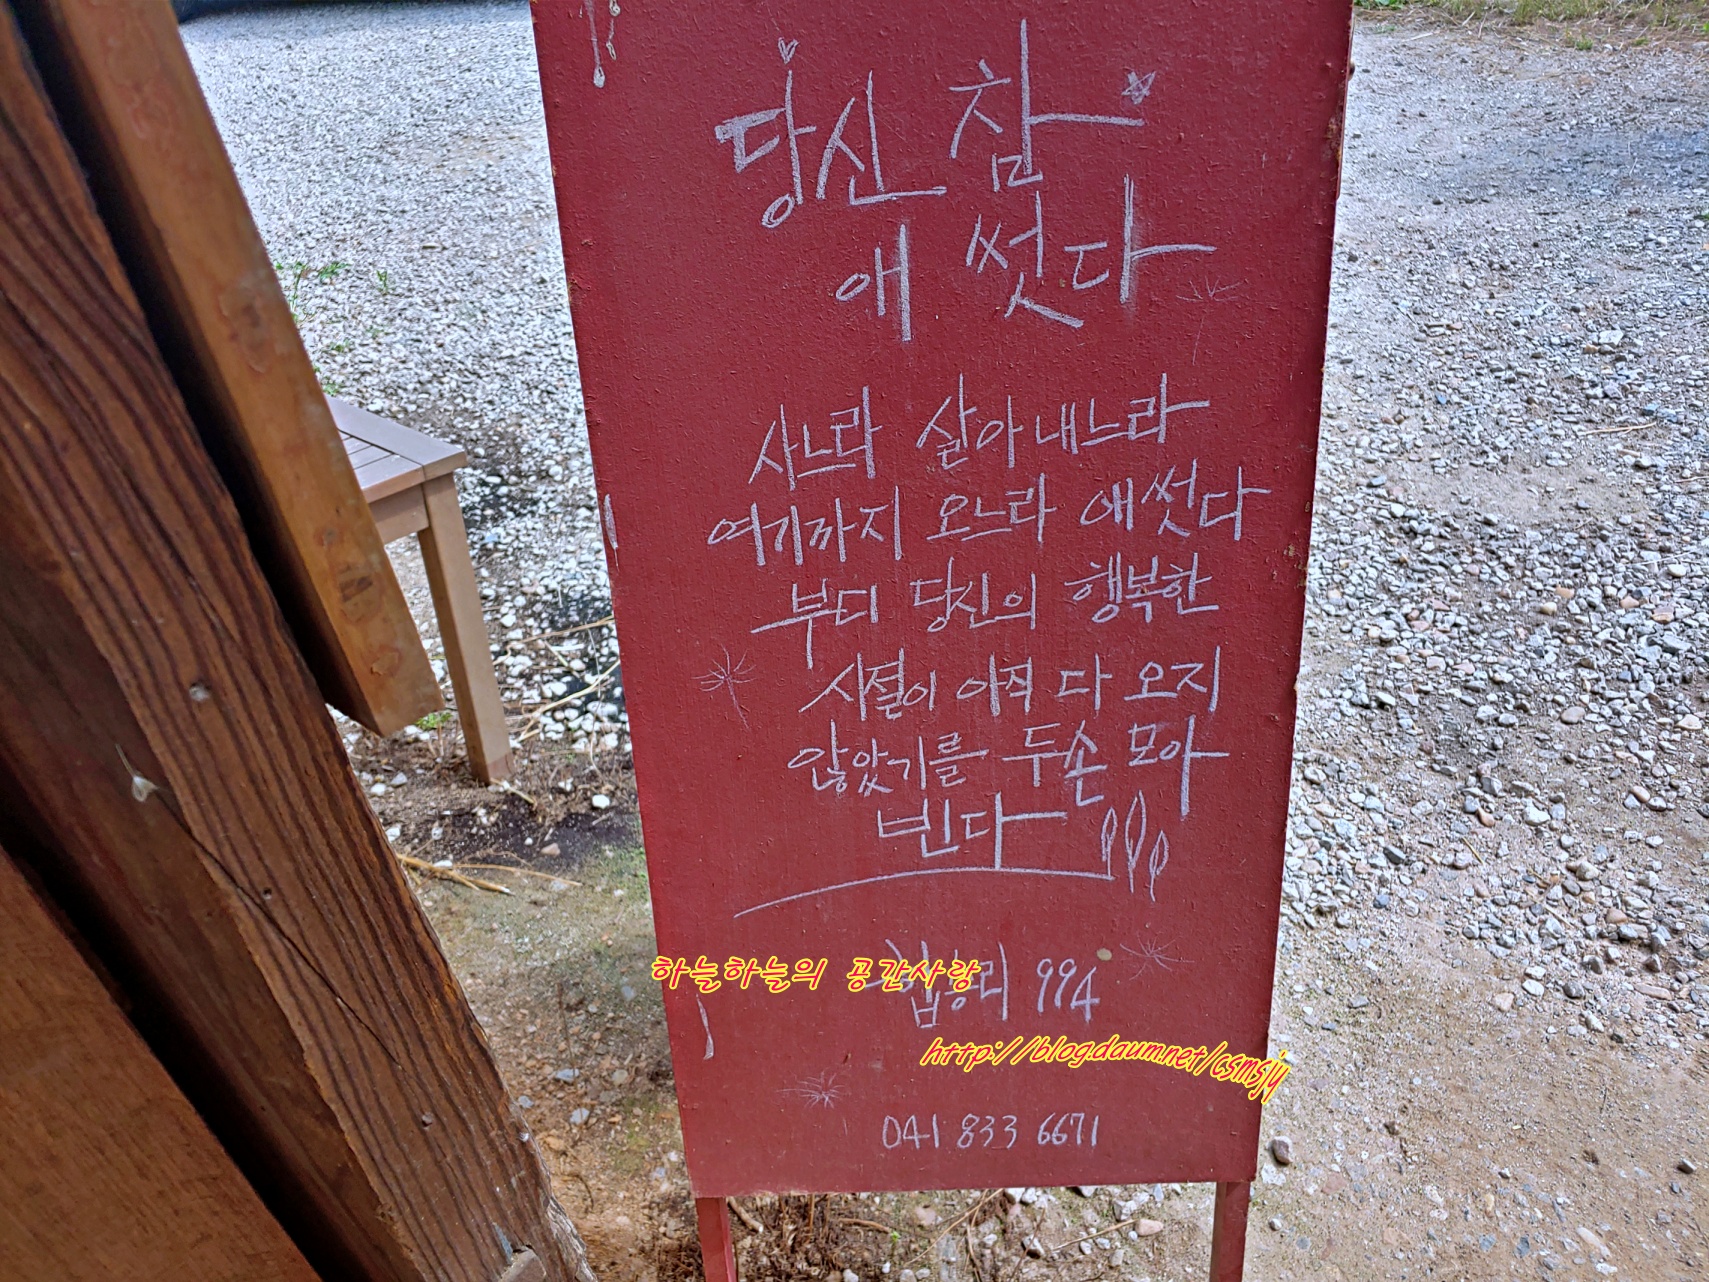 당신 참
애 썻다
사느라 살아내느라
여기까지 오느라 애썻다
부디 당신의 행복한
시절이 아직 다 오지
않았기를 두손 모아
빈다
하늘하늘의 공간사랑
합송리 994
http://blog.daum.net/csmsjy
041 833 6671